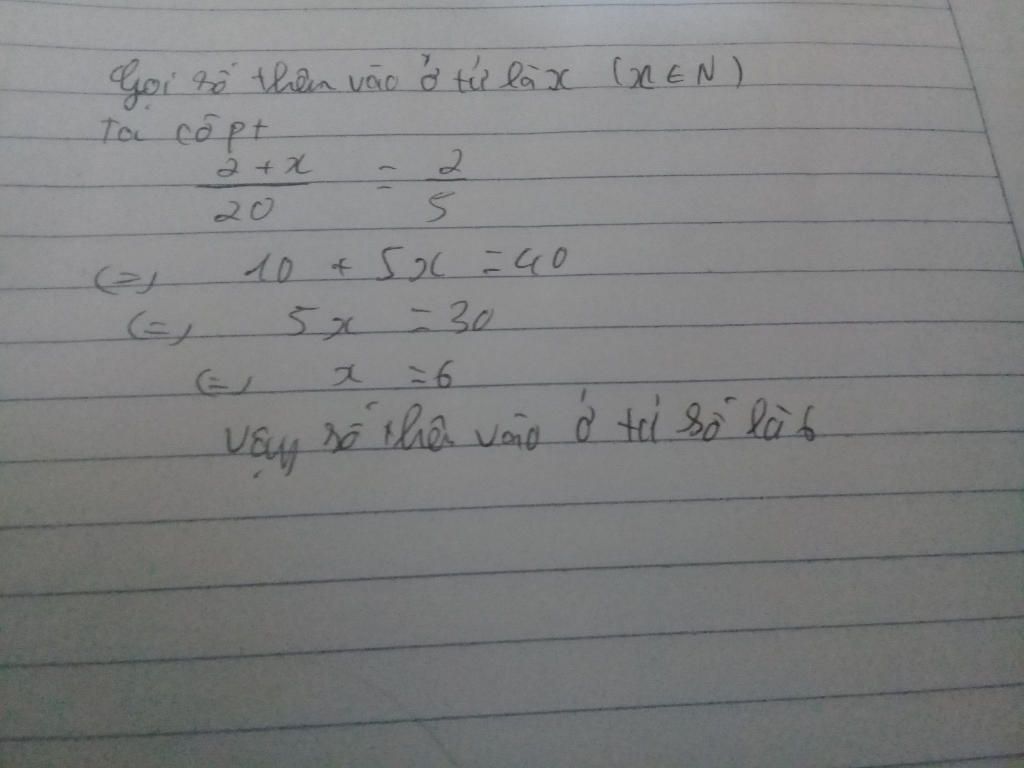 Gọi số thêm vào ở tử là x (x ∈ N)
Ta có pt
2 + x / 20 = 2 / 5
(=) 10 + 5x = 40
(=) 5x = 30
(=) x = 6
Vậy số thêm vào ở tử số là 6